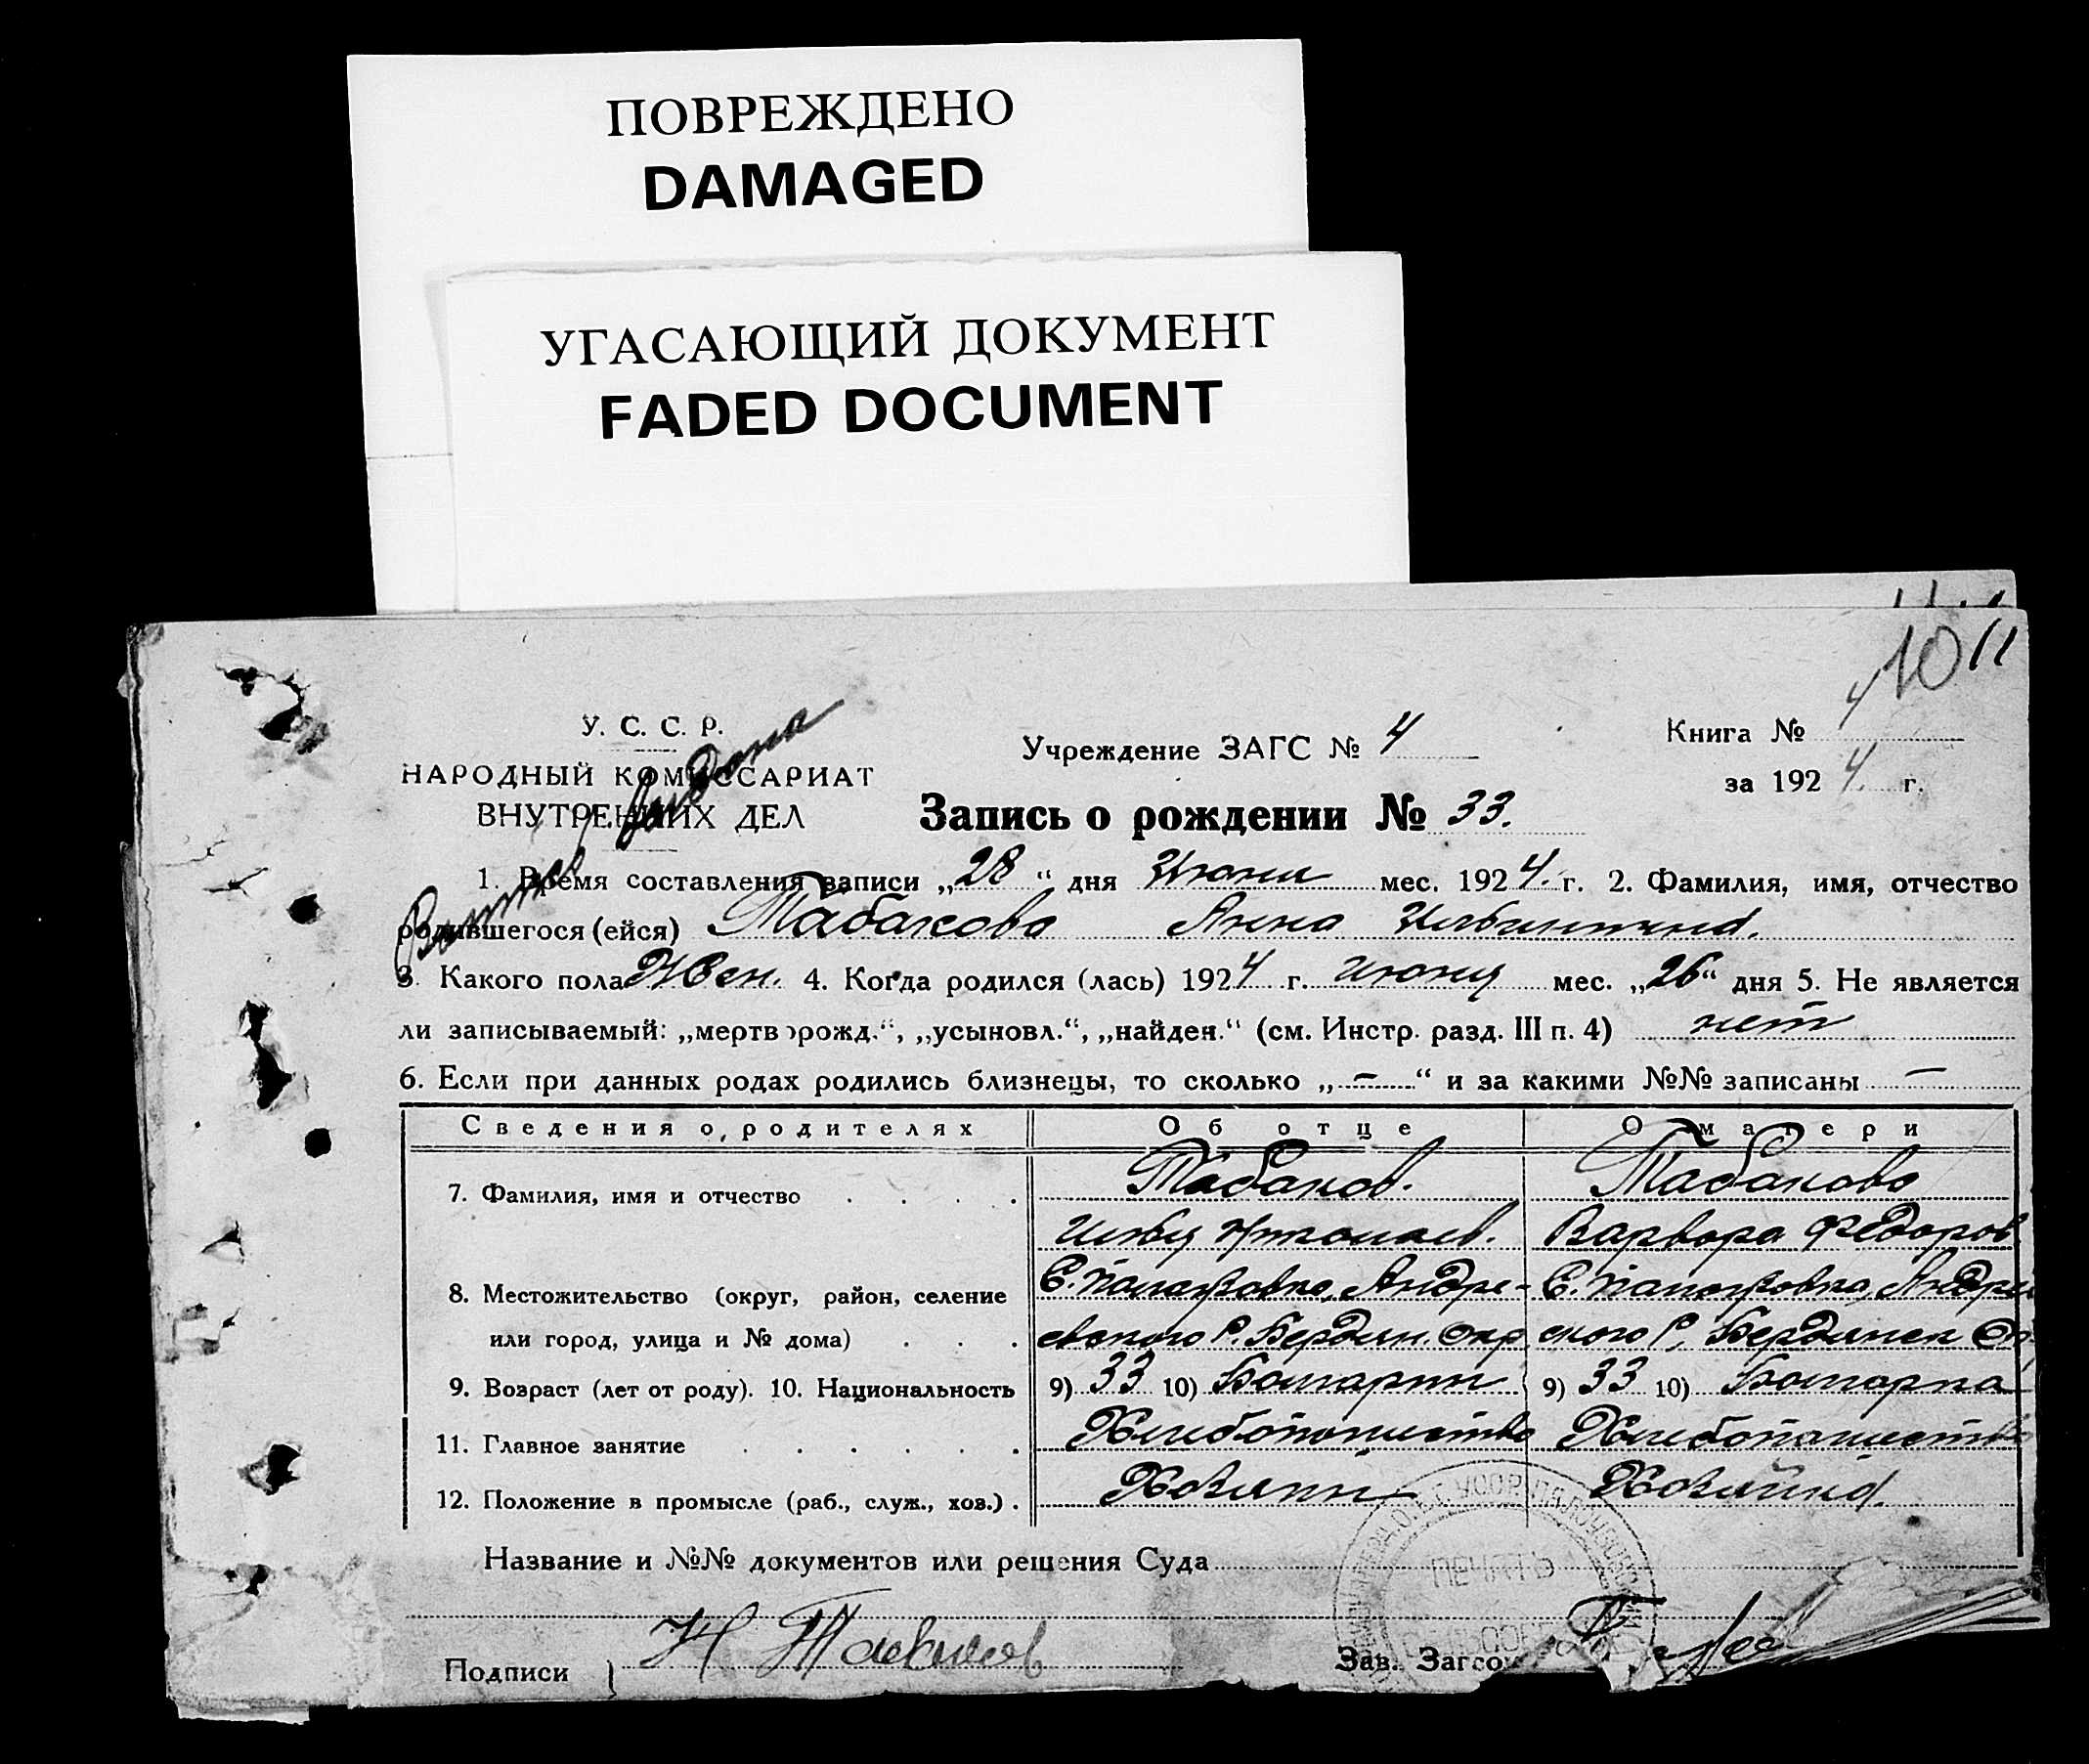 ПОВРЕЖДЕНО
DAMAGED
УГАСАЮЩИЙ ДОКУМЕНТ
FADED DOCUMENT
10 11
У. С. С. Р.
НАРОДНЫЙ КОМИССАРИАТ
ВНУТРЕННИХ ДЕЛ
Учреждение ЗАГС № 4
Книга № 4
за 1924 г.
Запись о рождении № 33.
1. Время составления записи „28“ дня Июни мес. 1924. г. 2. Фамилия, имя, отчество
родившегося (ейся) Табакова Анна
3. Какого пола Жен. 4. Когда родился (лась) 1924 г. июня мес. „26“ дня 5. Не является
ли записываемый: „мертворожд.“, „усыновл.“, „найден.“ (см. Инстр. разд. III п. 4) нет
6. Если при данных родах родились близнецы, то сколько „—“ и за какими №№ записаны —
Сведения о родителях Об отце О матери
7. Фамилия, имя и отчество . . . . Табаков. Табакова
Варвара Федоров
8. Местожительство (округ, район, селение Андре- Андрей
или город, улица и № дома) . . . евского Р. Бердян. Окр ского Р. Бердянск Ок
9. Возраст (лет от роду). 10. Национальность 9) 33 10) Болгарин 9) 33 10) Болгарка
11. Главное занятие . . . . . . Хлебопашество Хлебопашество
12. Положение в промысле (раб., служ., хоз.) . Хозяин Хозяйка
Название и №№ документов или решения Суда
ПЕЧАТЬ
Подписи } Н Табаков
Зав. Загсом